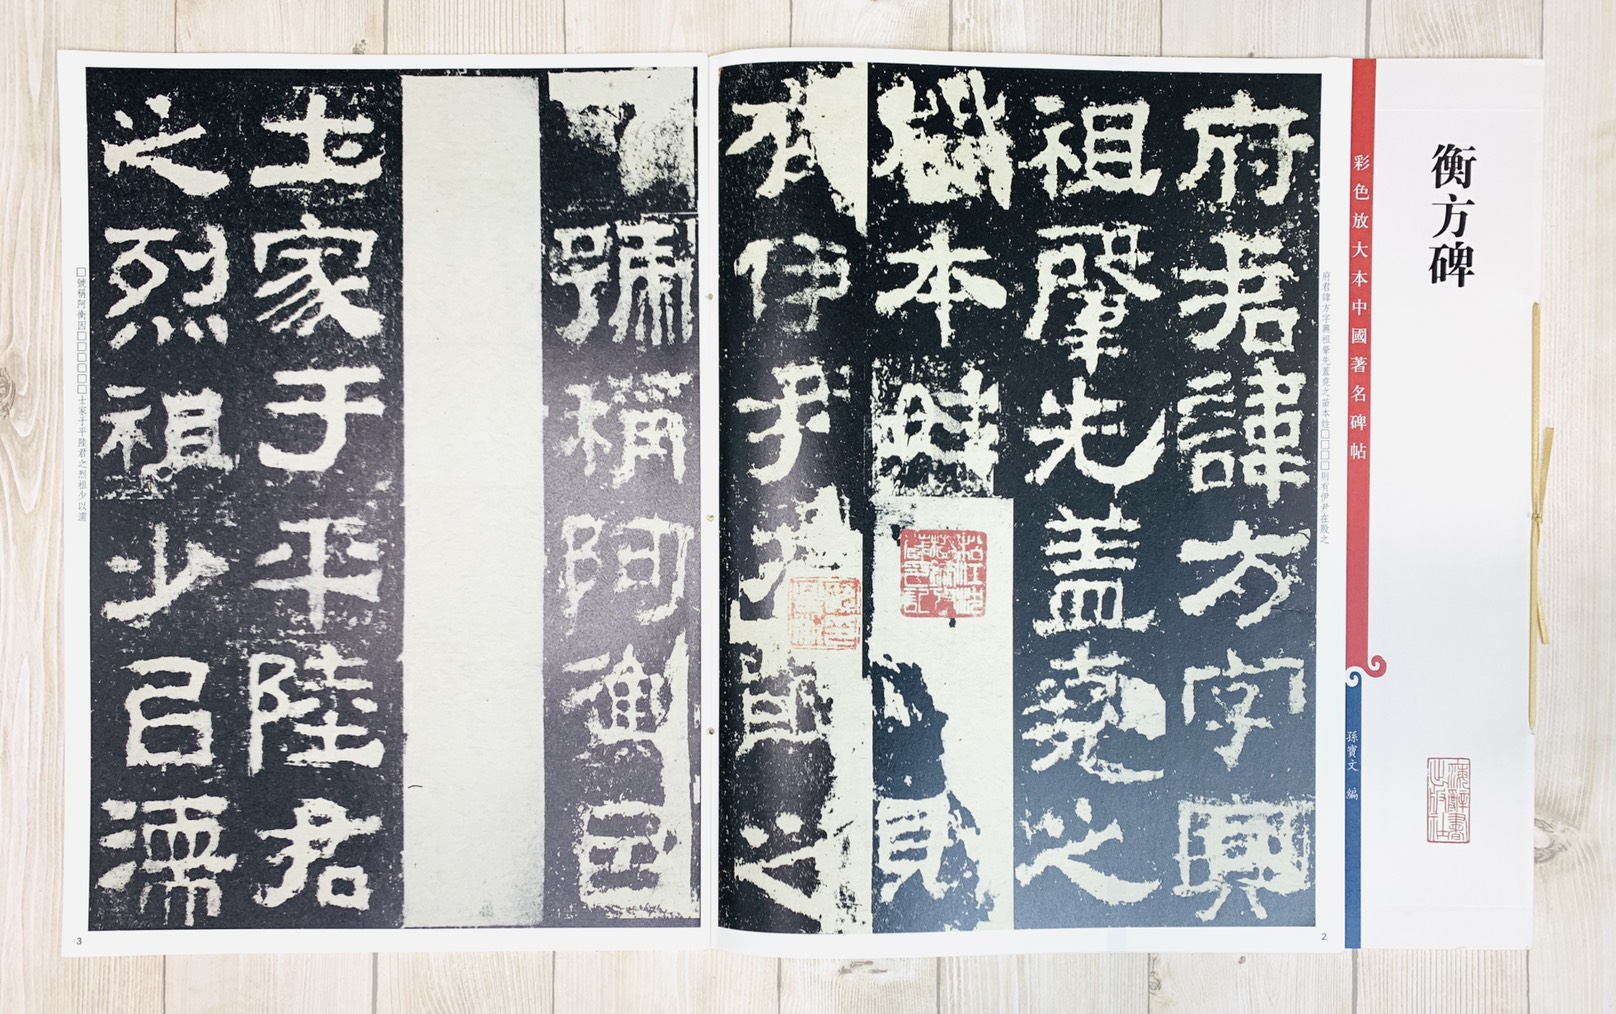 衡方碑
彩色放大本中國著名碑帖
孫寶文 編
海辭書出版社
府君諱方字興祖肇先蓋堯之苗本姓□□□□則有伊尹在殷之
府君諱方字興
祖肇先蓋堯之
苗本姓
則
有伊尹在殷之
2
號稱阿衡因
士家于平陸君
之烈祖少以濡
□號稱阿衡因□□□□□□士家于平陸君之烈祖少以濡
3